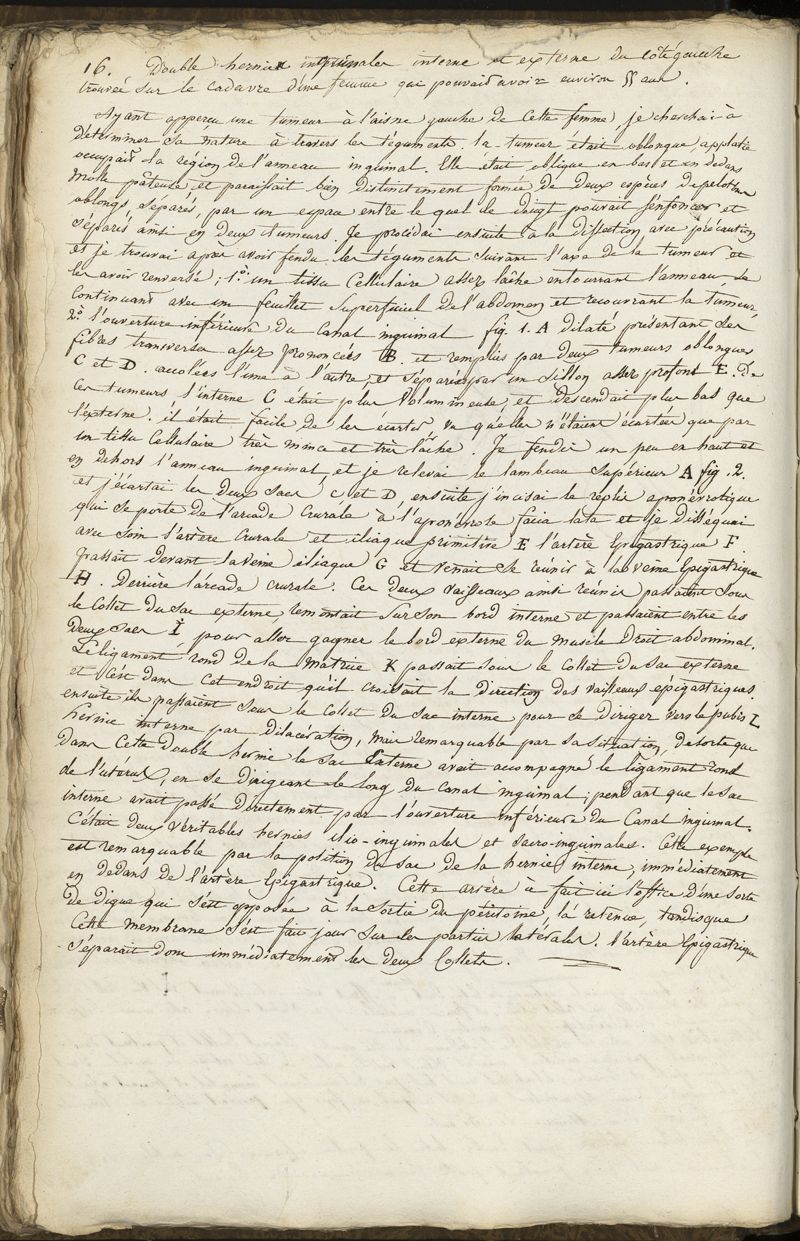 16. Double hernie inguinales interne et externe du côté gauche
trouvée sur le cadavre d'une femme qui pouvait avoir environ 55 ans.
Ayant apperçu une tumeur à l'aisne gauche de cette femme, je cherchai à
déterminer sa nature à travers les téguments. la tumeur était oblongue, applatie
occupait la région de l'anneau inguinal. Elle était oblique en bas et en dedans
molle pâteuse et paraissait bien distinctement formée de deux espèces de pelottes
oblongs séparés, par un espace entre le quel le doigt pouvait s'enfoncer et
séparés ainsi en deux tumeurs. Je procédai ensuite à la dissection avec précaution
et je trouvai après avoir fendu les téguments suivant l'axe de la tumeur et
les avoir renversé; 1.° un tissu cellulaire assez lâche entourrant l'anneau, se
continuant avec un feuillet superficiel de l'abdomen et recouvrant la tumeur,
2.° l'ouverture inférieure du canal inguinal fig. 1. A dilaté présentant ses
fibres transverses assez prononcées B. et remplies par deux tumeurs oblongues
C et D. accolées l'une à l'autre, et séparées par un sillon assez profond E. De
ces tumeurs, l'interne C était plus volumineuse, et descendait plus bas que
l'externe. il était facile de les écarter, vu qu'elles n'étaient écartées que par
un tissu cellulaire très mince et très lâche. Je fendis un peu en haut et
en dehors l'anneau inguinal, et je relevai le lambeau supérieur A fig. 2.
et j'écartai les deux sacs C et D, ensuite j'incisai le replis aponévrotique
qui se porte de l'arcade crurale à l'aponévrose facia lata et je disséquai
avec soin l'artère crurale et iliaque primitive E l'artère Epigastrique F.
passait devant la veine iliaque G et venait se réunir à la veine Epigastrique
H. Derrière l'arcade crurale. Ces deux vaisseaux ainsi réunis passaient sous
le collet du sac externe, remontait sur son bord interne et passaient entre les
deux sacs I, pour aller gagner le bord externe du muscle droit abdominal.
Le ligament rond de la matrice K passait sous le collet du sac externe
et c'est dans cet endroit qu'il croisait la direction des vaisseaux épigastriques.
ensuite ils passaient sous le collet du sac interne pour se diriger vers le pubis L
hernie interne par dilacération, mais remarquable par sa situation, de sorte que
dans cette double hernie le sac externe avait accompagné le ligament rond
de l'utérus, en se dirigeant le long du canal inguinal; pendant que le sac
interne avait passé directement par l'ouverture inférieure du canal inguinal.
C'était deux véritables hernies ilio-inguinales et sacro-inguinales. Cette exemple
est remarquable par la position du sac de la hernie interne, immédiatement
en dedans de l'artère Epigastrique. Cette artère à fait ici l'office d'une sorte
de digue qui s'est opposée à la sortie du péritoine, là retenue, tandisque
cette membrane s'est fait jour sur les parties latérales. l'artère Epigastrique
séparait donc immédiatement les deux collets.